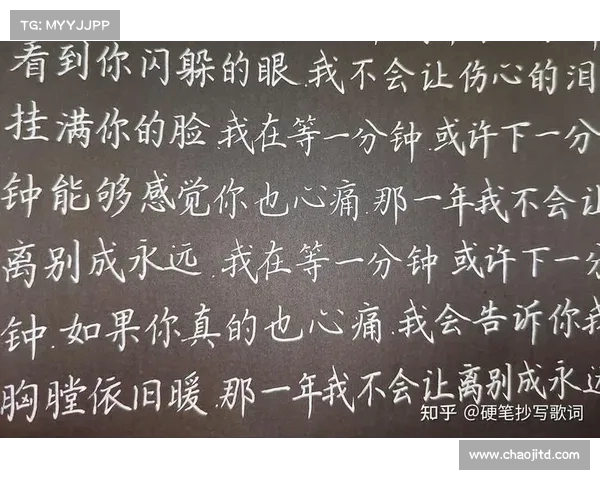 TG: MYYJJPP
看到你闪躲的眼.我不会让伤心的泪
挂满你的脸.我在等一分钟.或许下一分
钟能够感觉你也心痛.那一年我不会让
离别成永远.我在等一分钟 或许下一分
钟.如果你真的也心痛.我会告诉你我
胸膛依旧暖.那一年我不会让离别成永远
知乎 @硬笔抄写歌词
www.chaojitd.com